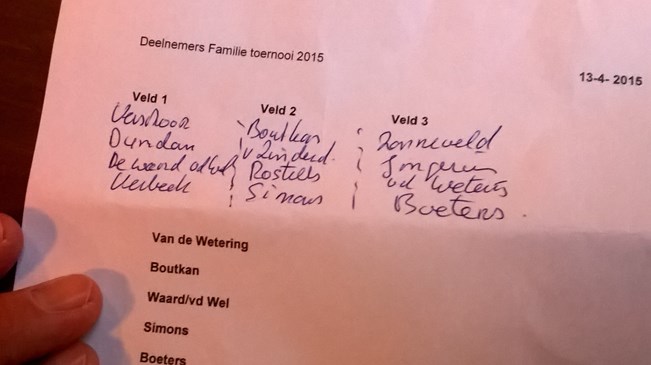 Deelnemers Familie toernooi 2015
13-4- 2015
Veld 1 Veld 2 Veld 3
Verstoor Boutkan Zonneveld
Dundan v Zuiderd.
De waard vd Wel Rostels vd Wetering
Verbeek Simons Boeters.
Van de Wetering
Boutkan
Waard/vd Wel
Simons
Boeters